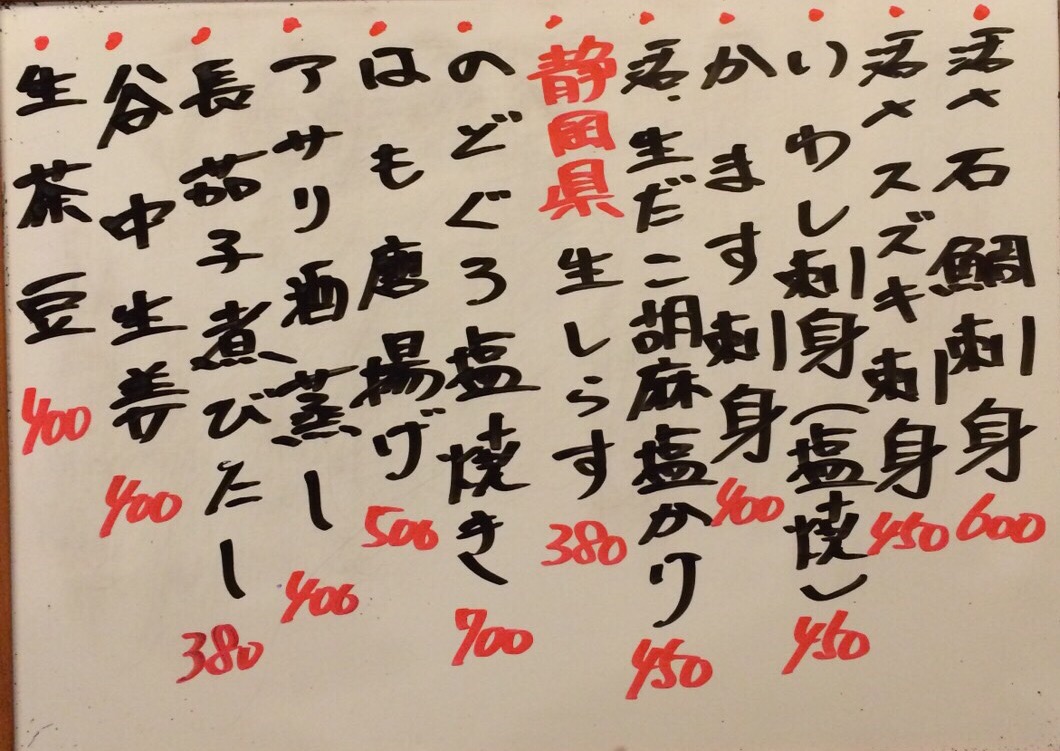 活〆石鯛刺身 600
活〆スズキ刺身 450
いわし刺身(塩焼) 450
かます刺身 400
活〆生だこ胡麻塩かり 450
静岡県生しらす 380
のどぐろ塩焼き 700
はも磨揚げ 500
アサリ酒蒸し 400
長茄子煮びたし 380
谷中生姜 400
生茶豆 400